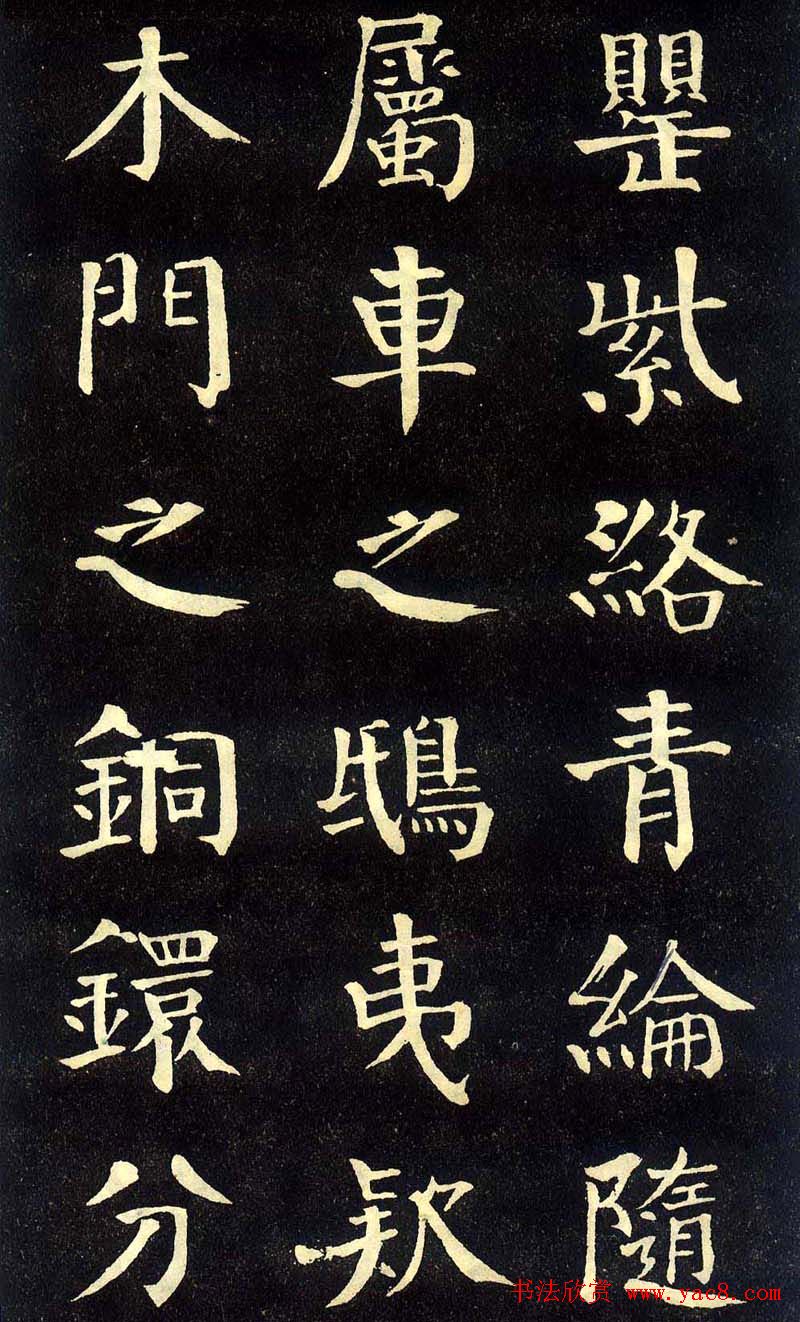 罌紫絡青綸隨
屬車之鴟夷欵
木門之銅鐶分
书法欣赏 www.yac8.com